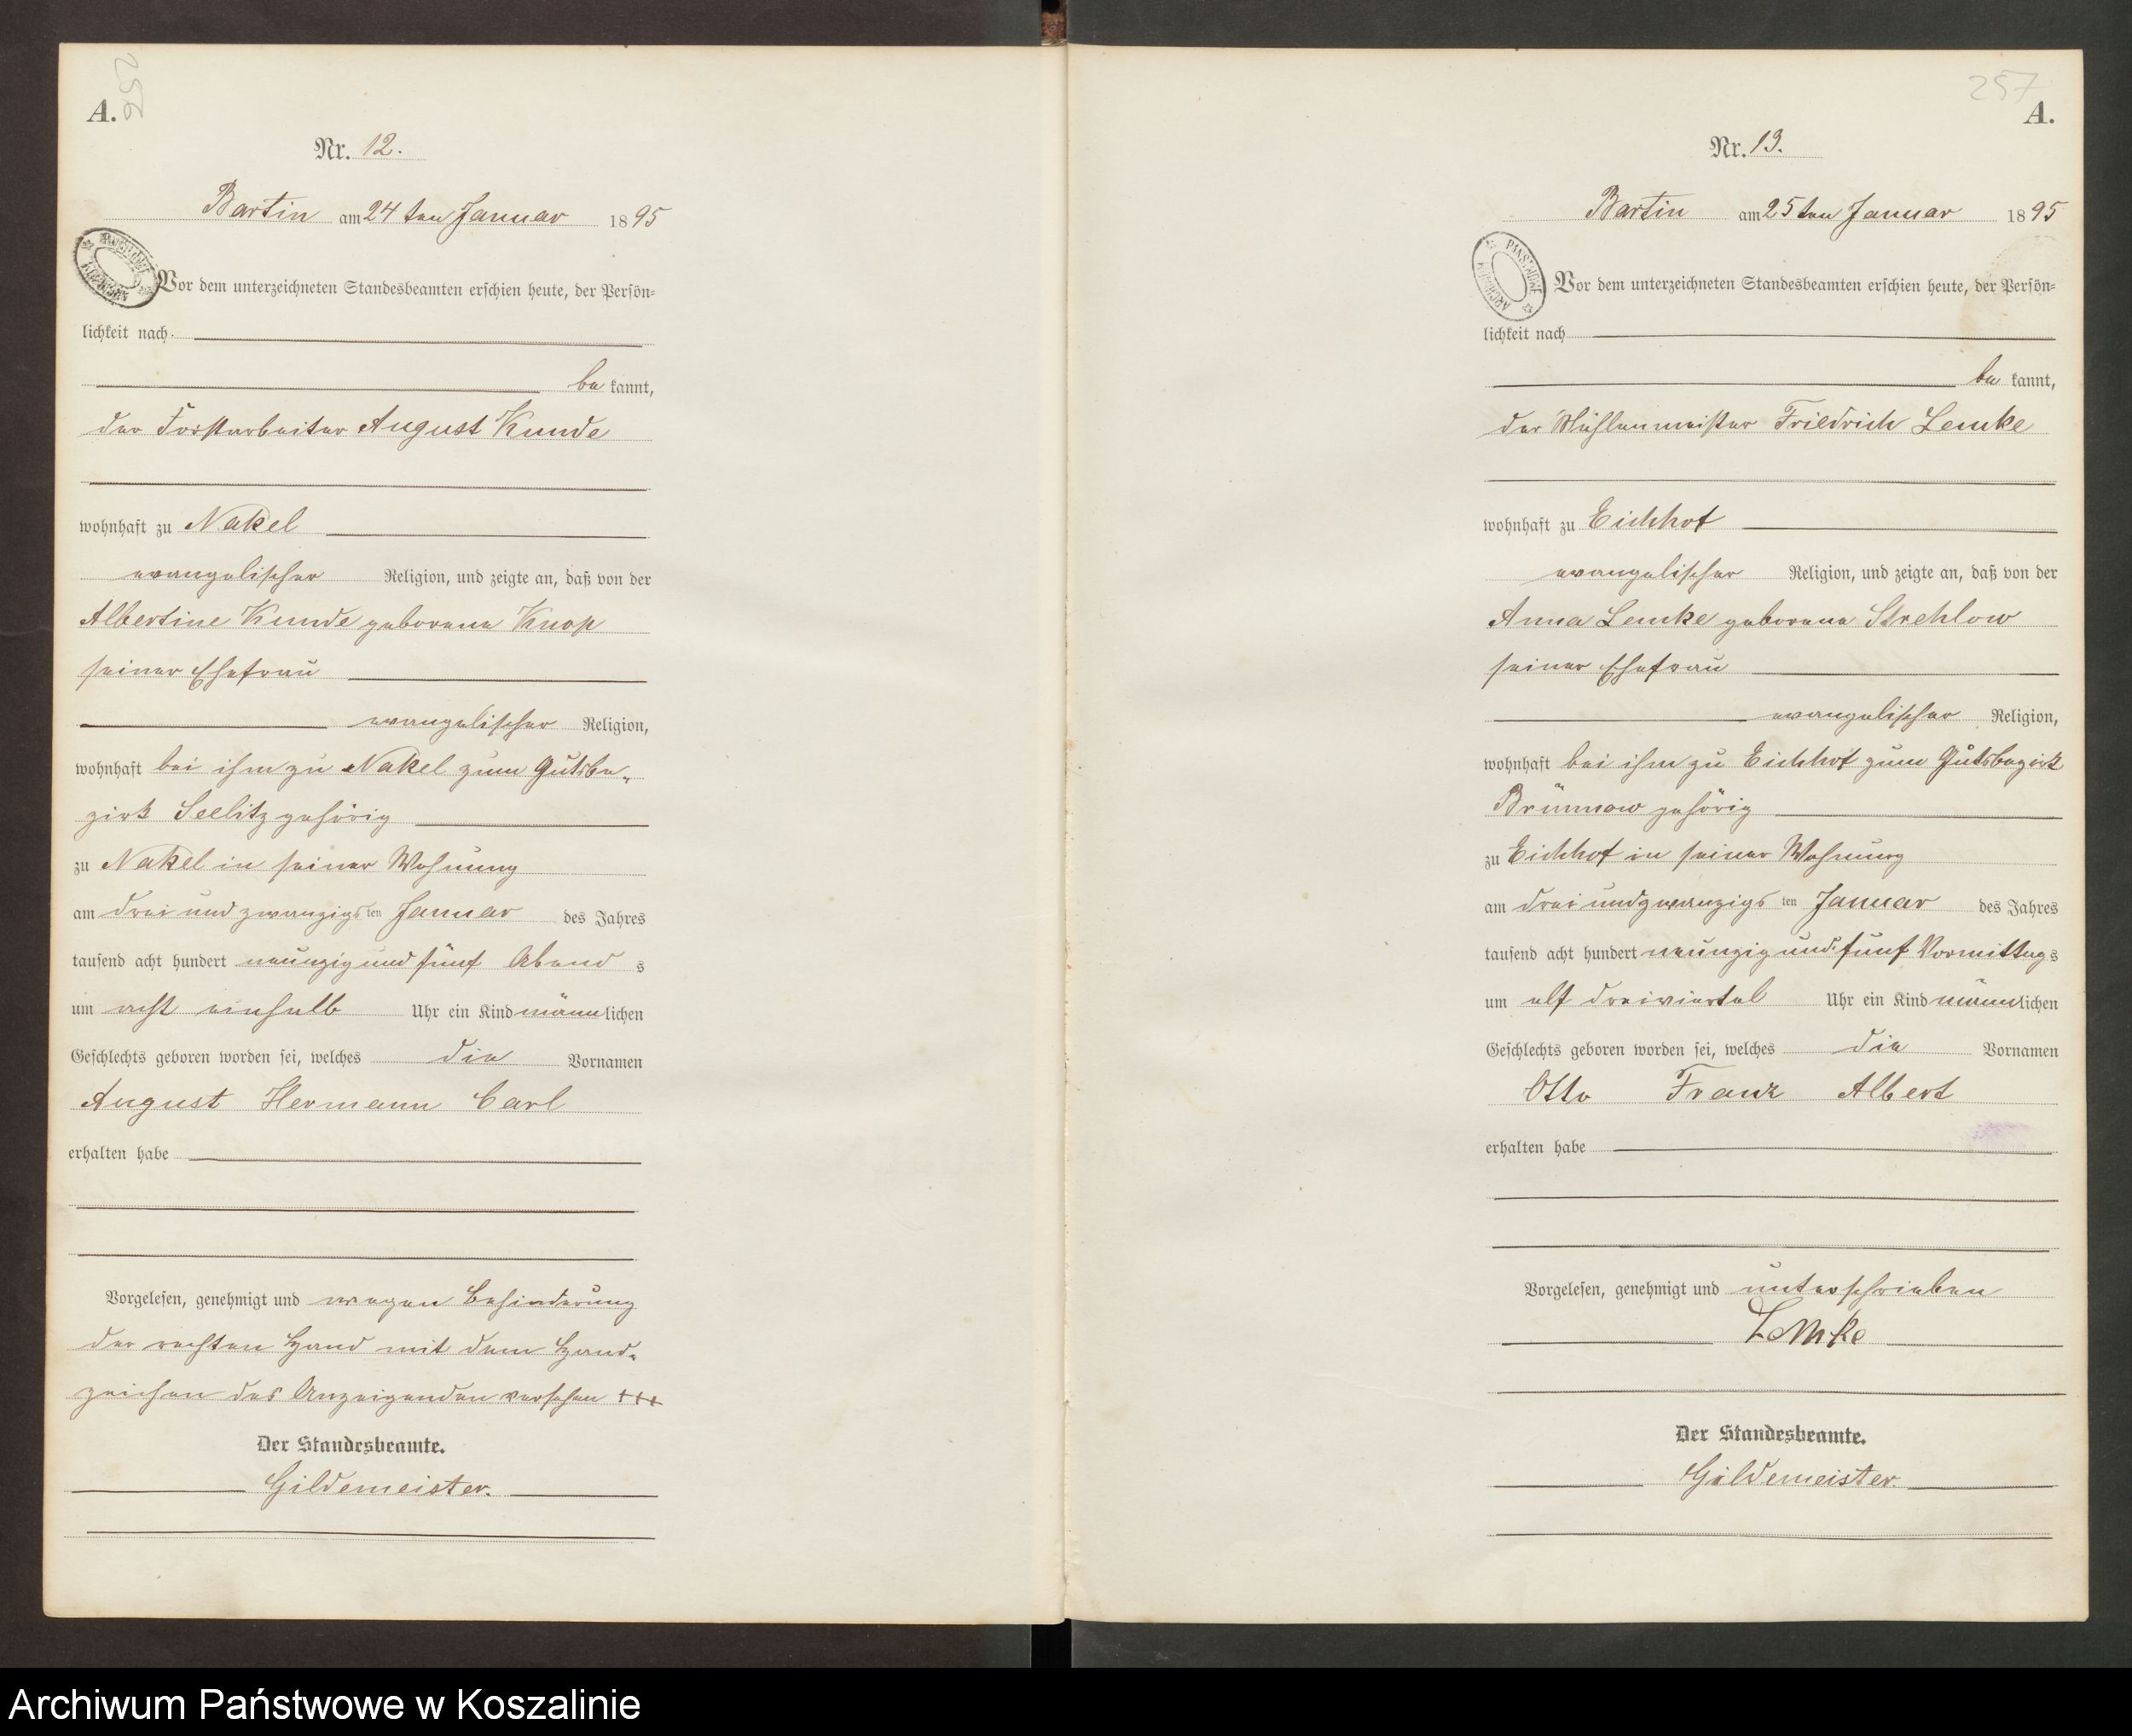 256
A.
Nr. 12.
Bartin am 24ten Januar 1895
Vor dem unterzeichneten Standesbeamten erschien heute, der Persön=
lichkeit nach
be kannt,
der Forstarbeiter August Kunde
wohnhaft zu Nakel
evangelischer Religion, und zeigte an, daß von der
Albertine Kunde geborene Knop
seiner Ehefrau
evangelischer Religion,
wohnhaft bei ihm zu Nakel zum Gutsbe-
zirk Seelitz gehörig
zu Nakel in seiner Wohnung
am drei und zwanzigsten Januar des Jahres
tausend acht hundert neunzig und fünf Abends
um acht einhalb Uhr ein Kind männlichen
Geschlechts geboren worden sei, welches die Vornamen
August Hermann Carl
erhalten habe
Vorgelesen, genehmigt und wegen Behinderung
der rechten Hand mit dem Hand-
zeichen des Anzeigenden versehen +++
Der Standesbeamte.
Gildemeister.
257
A.
Nr. 13.
Bartin am 25ten Januar 1895
PAŃSTWOWE ARCHIWUM
Vor dem unterzeichneten Standesbeamten erschien heute, der Persön=
lichkeit nach
be kannt,
der Mühlenmeister Friedrich Lemke
wohnhaft zu Eichhof
evangelischer Religion, und zeigte an, daß von der
Anna Lemke geborene Strehlow
seiner Ehefrau
evangelischer Religion,
wohnhaft bei ihm zu Eichhof zum Gutsbezirk
Brünnow gehörig
zu Eichhof in seiner Wohnung
am drei und zwanzigsten Januar des Jahres
tausend acht hundert neunzig und fünf Vormittags
um elf dreiviertel Uhr ein Kind männlichen
Geschlechts geboren worden sei, welches die Vornamen
Otto Franz Albert
erhalten habe
Vorgelesen, genehmigt und unterschrieben
Lemke
Der Standesbeamte.
Gildemeister.
Archiwum Państwowe w Koszalinie